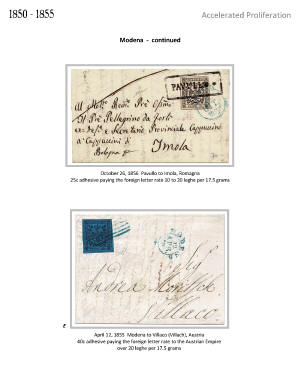 1850 - 1855
Accelerated Proliferation
Modena - continued
PAVULLO
Al Molto Revdo Pre Essimo
Il Pre Pellegrino da Forlì
ex-Defre e Secretario Provinciale Cappuccini
a Cappuccini di
Bologna per
Imola
October 26, 1856 Pavullo to Imola, Romagna
25c adhesive paying the foreign letter rate 10 to 20 leghe per 17.5 grams
Sig
Andrea
Villaco
E
April 12, 1855 Modena to Villaco (Villach), Austria
40c adhesive paying the foreign letter rate to the Austrian Empire
over 20 leghe per 17.5 grams